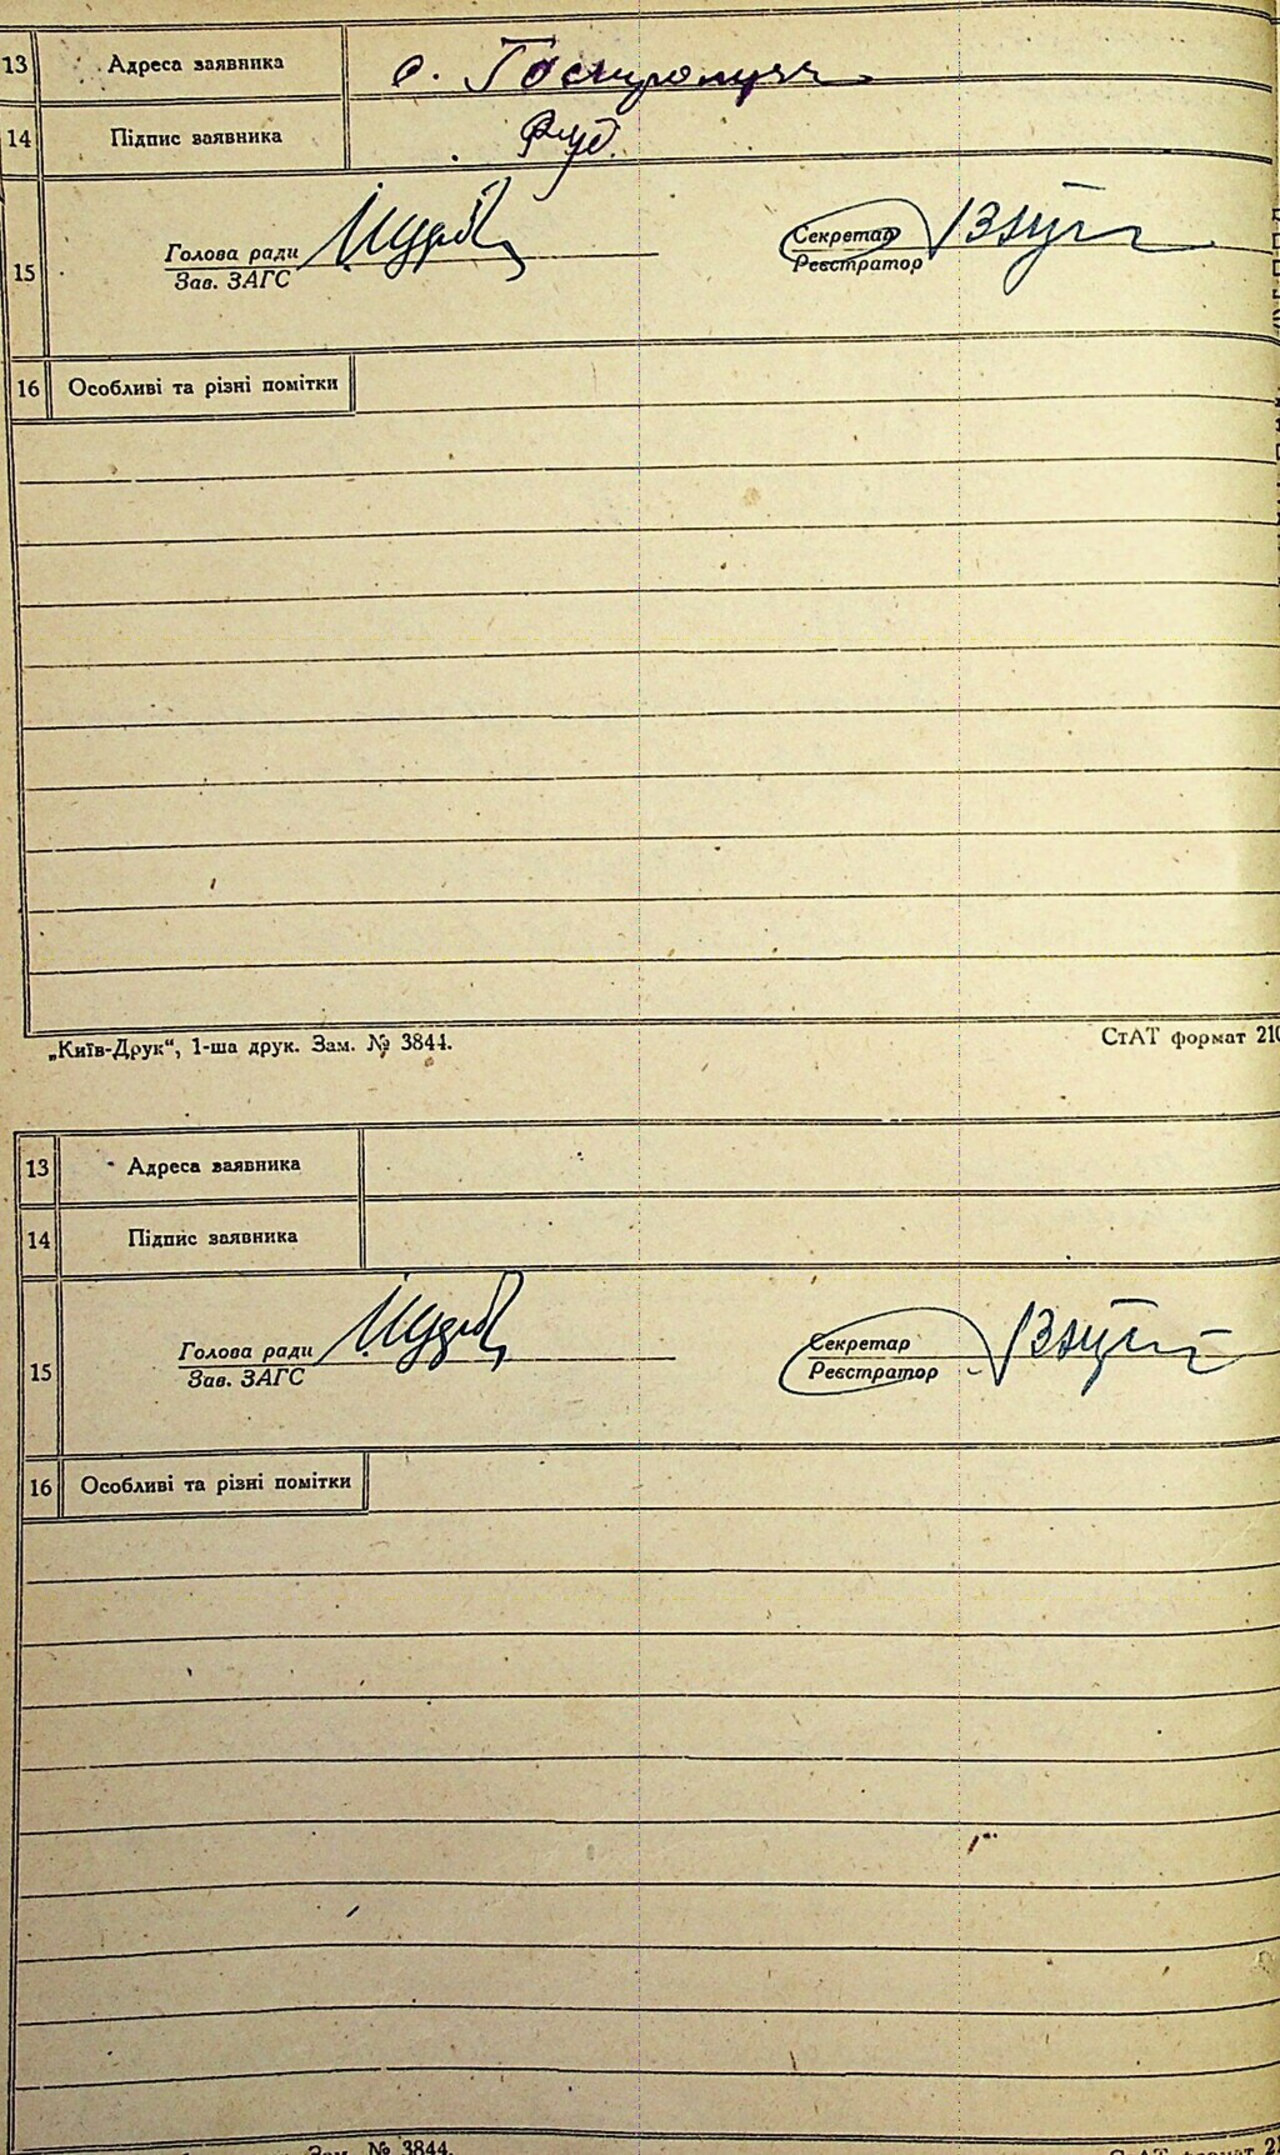 13 Адреса заявника с. Гостролуччя
14 Підпис заявника Руд.
15 Голова ради Секретар
Зав. ЗАГС Реєстратор
16 Особливі та різні помітки
„Київ-Друк“, 1-ша друк. Зам. № 3844. СтАТ формат 210
13 Адреса заявника
14 Підпис заявника
15 Голова ради Секретар
Зав. ЗАГС Реєстратор
16 Особливі та різні помітки
Зам. № 3844.